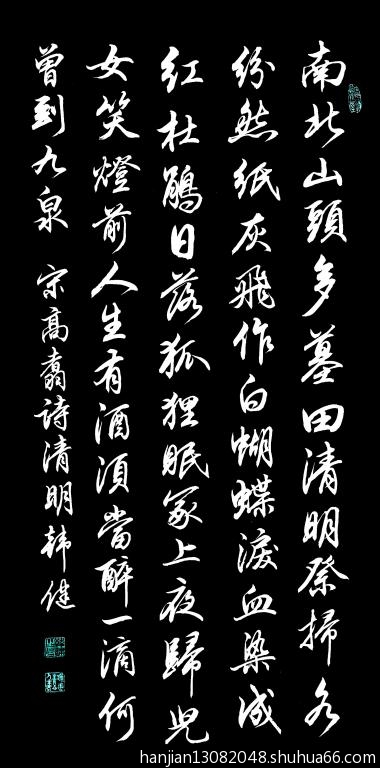 南北山頭多墓田清明祭掃各
紛然紙灰飛作白蝴蝶淚血染成
紅杜鵑日落狐狸眠冢上夜歸兒
女笑燈前人生有酒須當醉一滴何
曾到九泉 宋高翥詩清明韓健
hanjian13082048.shuhua66.com